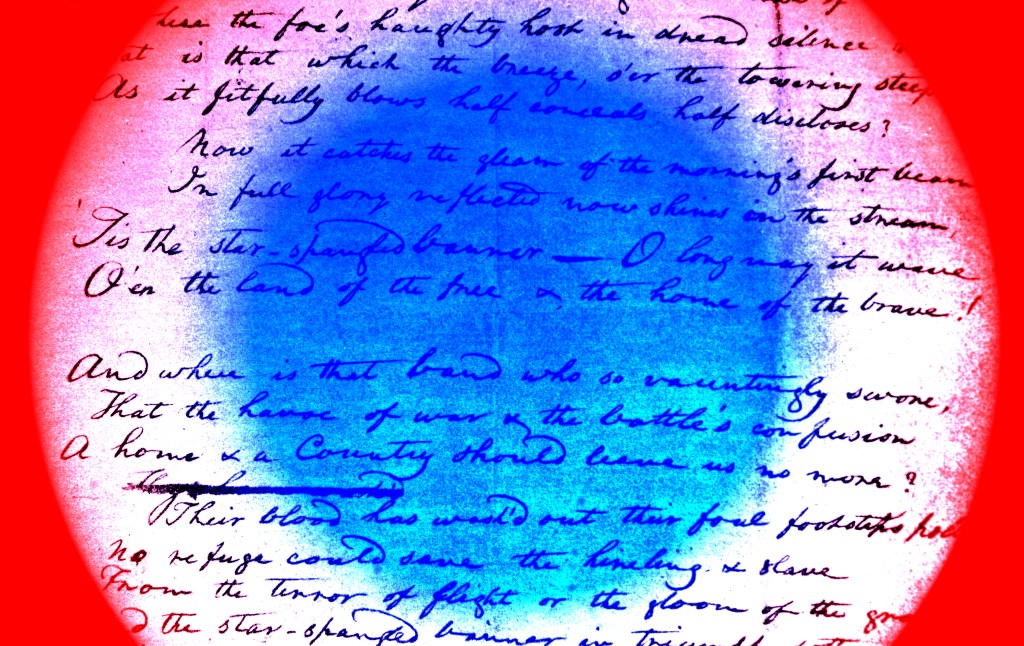 the foe's haughty host in dread silence
at is that which the breeze, o'er the towering steep
As it fitfully blows half conceals half discloses?
Now it catches the gleam of the morning's first beam
In full glory reflected now shines in the stream,
'Tis the star-spangled banner — O long may it wave
O'er the land of the free & the home of the brave!
And where is that band who so vauntingly swore,
That the havoc of war & the battle's confusion
A home & a Country should leave us no more?
Their blood has wash'd out their foul footsteps
No refuge could save the hireling & slave
From the terror of flight or the gloom of the
the star-spangled banner in